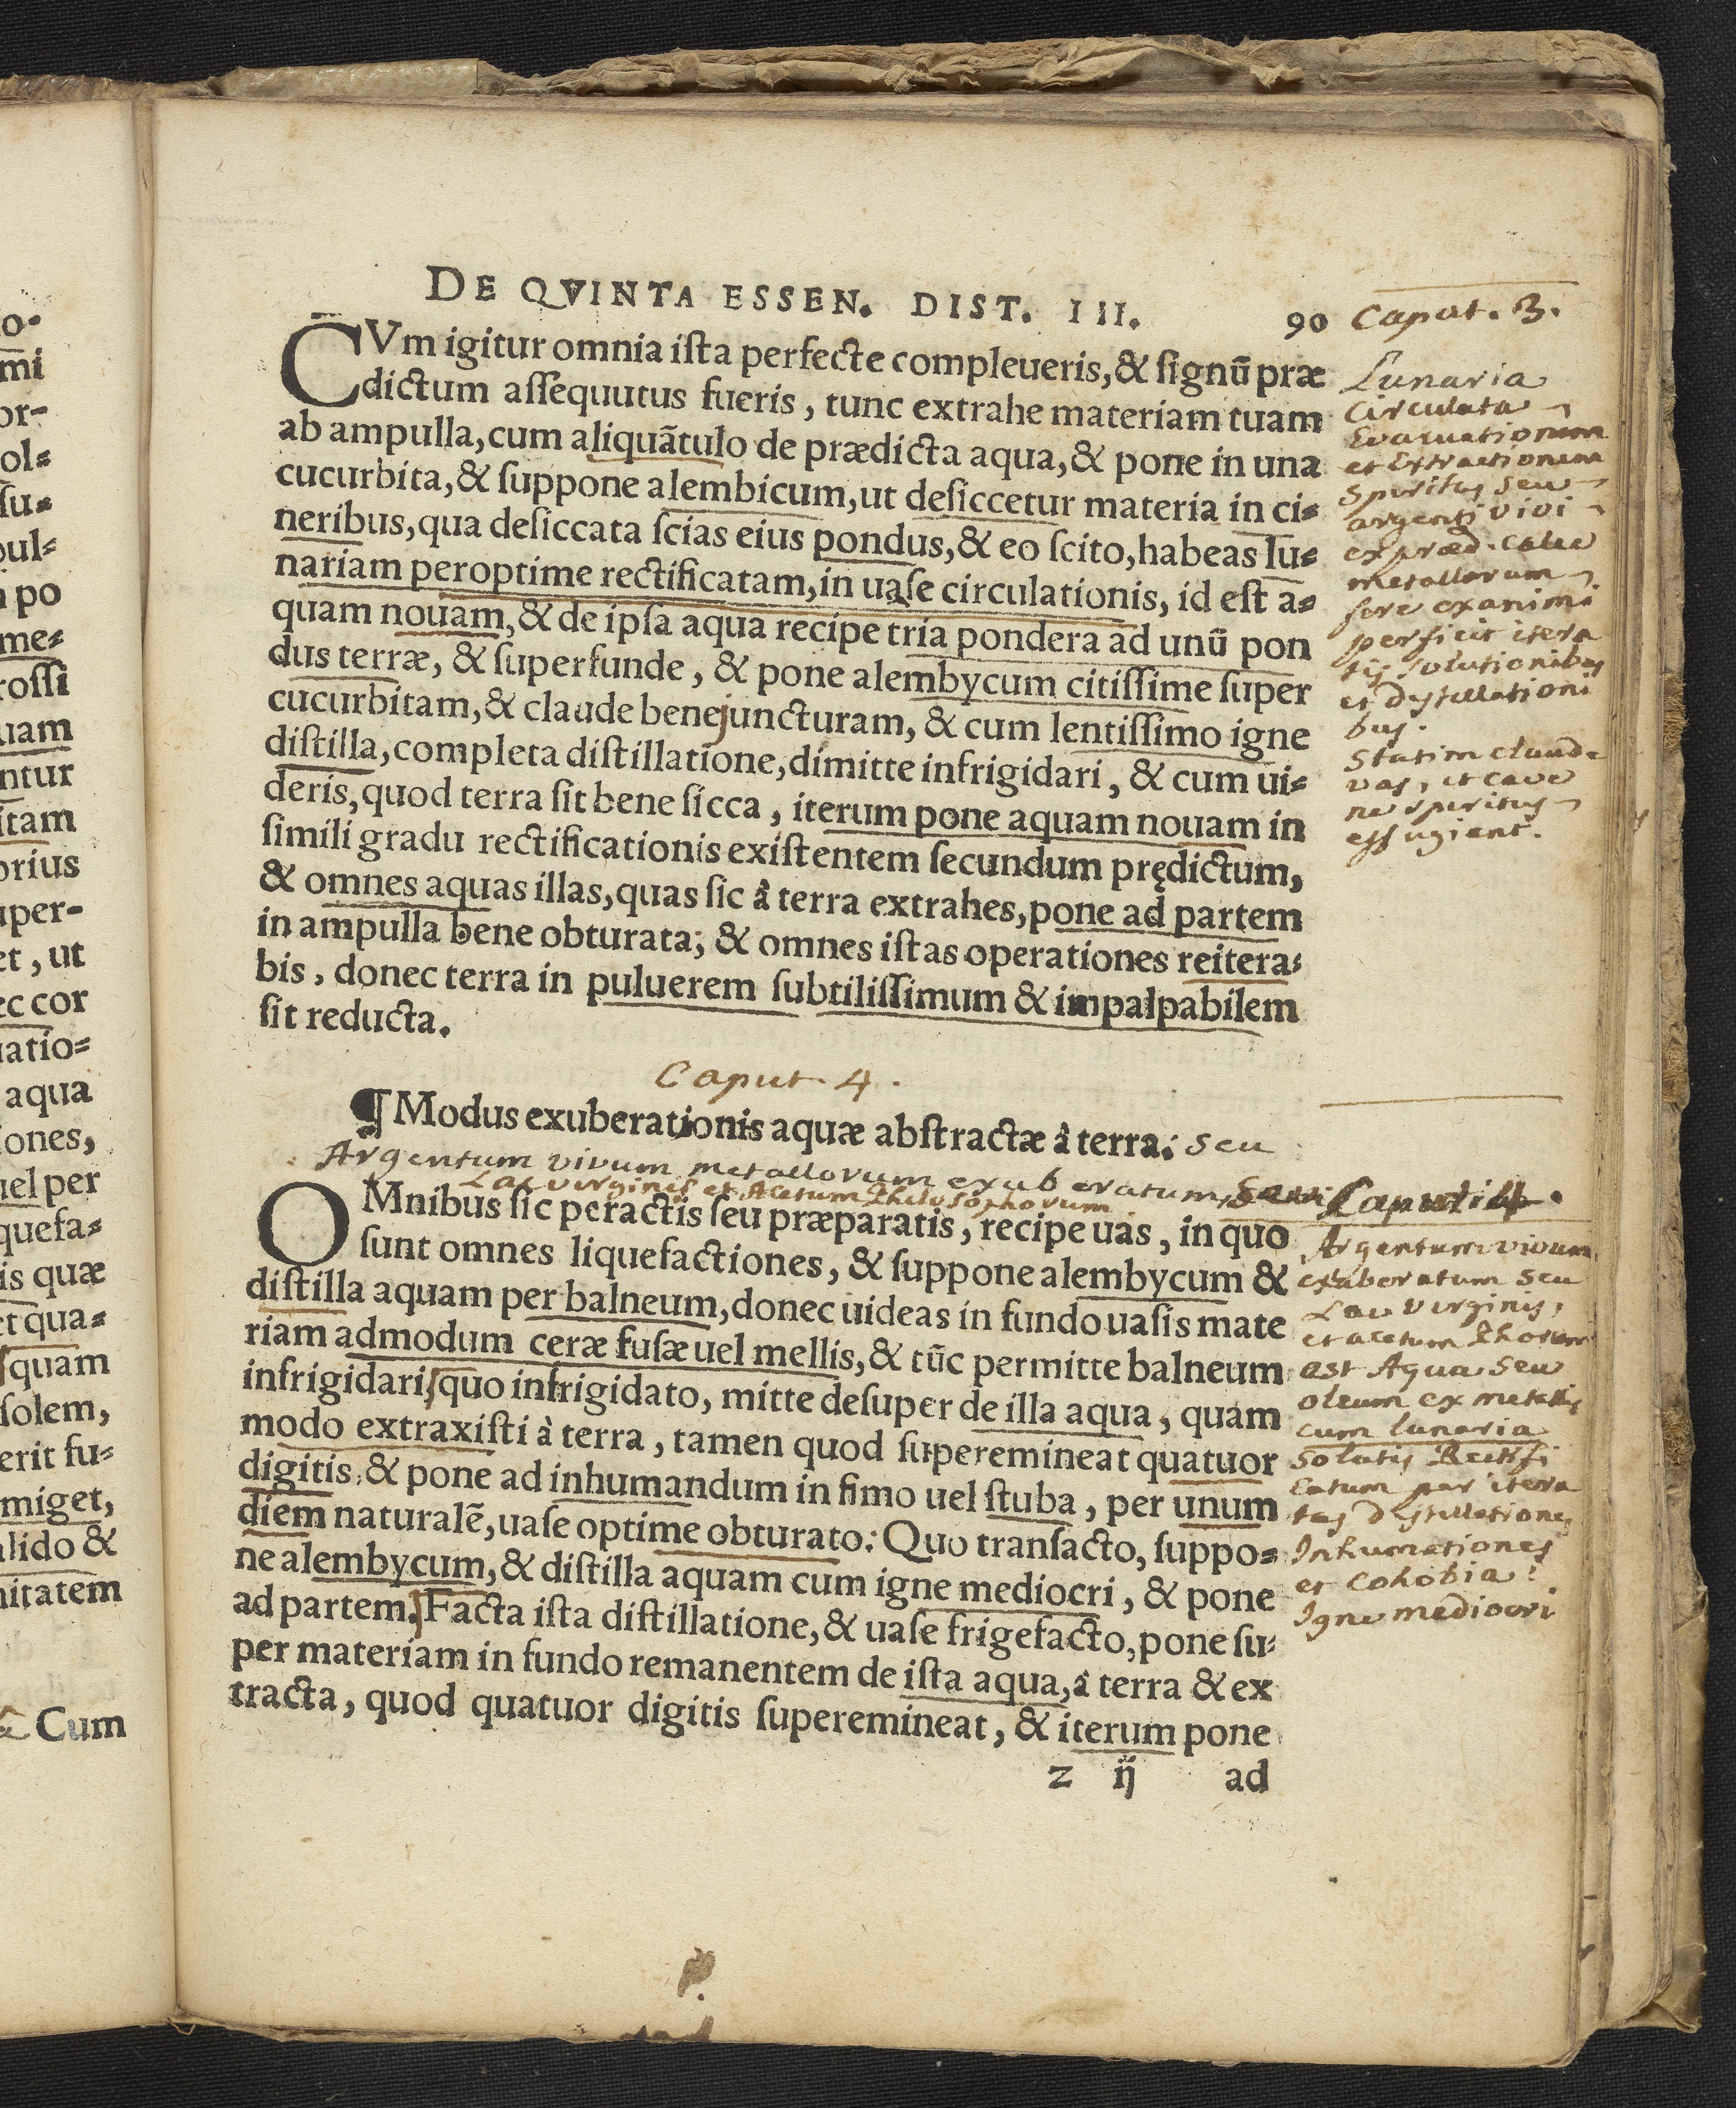 DE QVINTA ESSEN. DIST. III. 90
CVm igitur omnia ista perfecte compleueris, & signū præ
dictum assequutus fueris, tunc extrahe materiam tuam
ab ampulla, cum aliquãtulo de prædicta aqua, & pone in una
cucurbita, & suppone alembicum, ut desiccetur materia in ci-
neribus, qua desiccata scias eius pondus, & eo scito, habeas lu-
nariam peroptime rectificatam, in uase circulationis, id est a-
quam nouam, & de ipsa aqua recipe tria pondera ad unū pon
dus terræ, & superfunde, & pone alembycum citissime super
cucurbitam, & claude bene juncturam, & cum lentissimo igne
distilla, completa distillatione, dimitte infrigidari, & cum ui-
deris, quod terra sit bene sicca, iterum pone aquam nouam in
simili gradu rectificationis existentem secundum prędictum,
& omnes aquas illas, quas sic â terra extrahes, pone ad partem
in ampulla bene obturata; & omnes istas operationes reitera-
bis, donec terra in puluerem subtilissimum & impalpabilem
sit reducta.
Caput. 3.
Lunaria
Circulata
Evacuationem
et Extractionem
Spiritus seu
argenti vivi
ex præd. calce
metallorum
fere exanimi
perficit itera
tis solutionibus
et dystillationi
bus.
Statim claude
vas, et cave
ne spiritus
effugiant.
Caput. 4.
¶ Modus exuberationis aquæ abstractæ â terra: seu
Argentum vivum metallorum exuberatum,
Lac virginis et Acetum Philosophorum
OMnibus sic peractis seu præparatis, recipe uas, in quo
sunt omnes liquefactiones, & suppone alembycum &
distilla aquam per balneum, donec uideas in fundo uasis mate
riam admodum ceræ fusæ uel mellis, & tūc permitte balneum
infrigidari, quo infrigidato, mitte desuper de illa aqua, quam
modo extraxisti à terra, tamen quod superemineat quatuor
digitis, & pone ad inhumandum in fimo uel stuba, per unum
diem naturalē, uase optime obturato: Quo transacto, suppo-
ne alembycum, & distilla aquam cum igne mediocri, & pone
ad partem. Facta ista distillatione, & uase frigefacto, pone su-
per materiam in fundo remanentem de ista aqua, â terra & ex
tracta, quod quatuor digitis superemineat, & iterum pone
z ij ad
Argentum vivum
exuberatum seu
Lac virginis,
et acetum Phorum
est Aqua seu
oleum ex metallis
cum lunaria
solutis Rectifi
catum per itera
tas dystillationes
Inhumationes
et Cohobia.
Igne mediocri
o-
mi
or-
ol-
su-
pul-
po
me-
rossi
uam
ntur
itam
orius
uper-
et, ut
ec cor
uatio-
aqua
iones,
uel per
quefa-
is quæ
et qua-
squam
solem,
erit fu-
miget,
alido &
nitatem
Cum